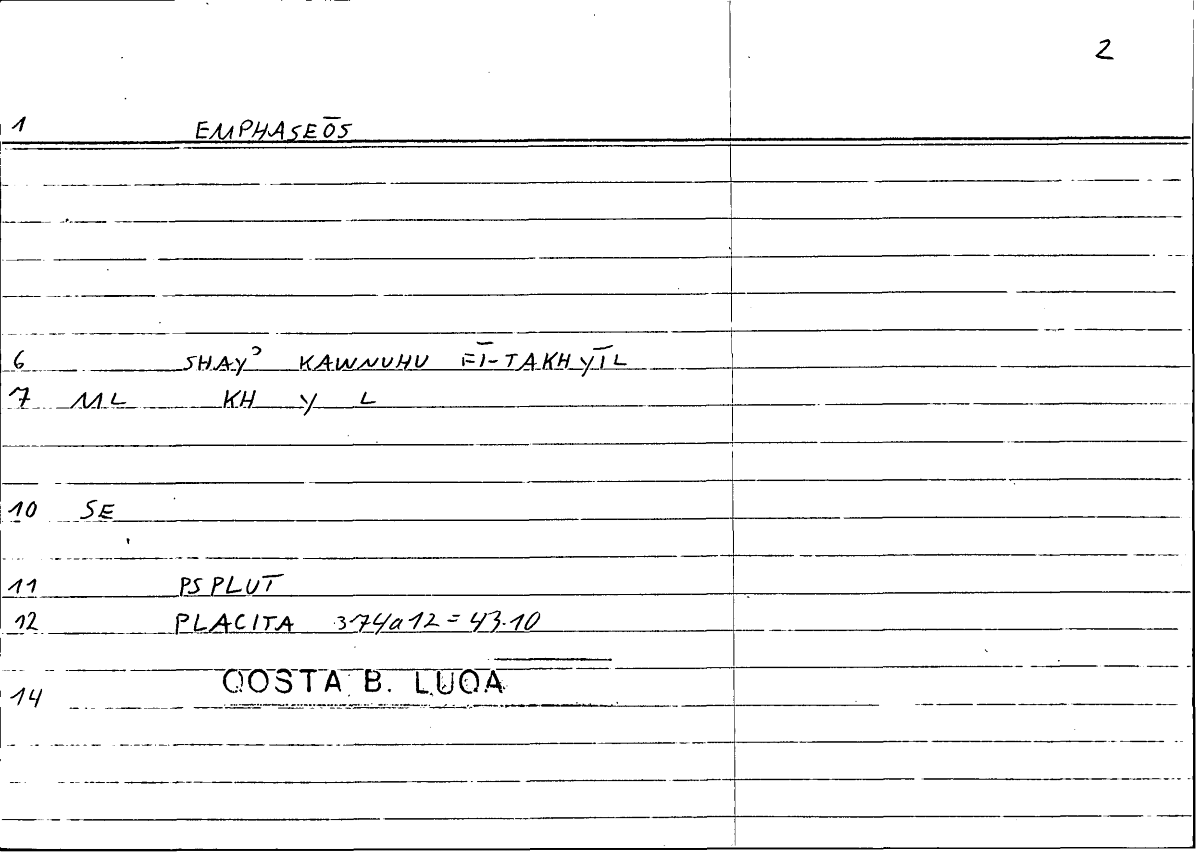 2
1 EMPHASEŌS
6 SHAYʾ KAWNUHU FĪ-TAKHYĪL
7 ML KH Y L
10 SE
11 PS PLUT
12 PLACITA 374a12 = 43.10
14 QOSTA B. LUQA